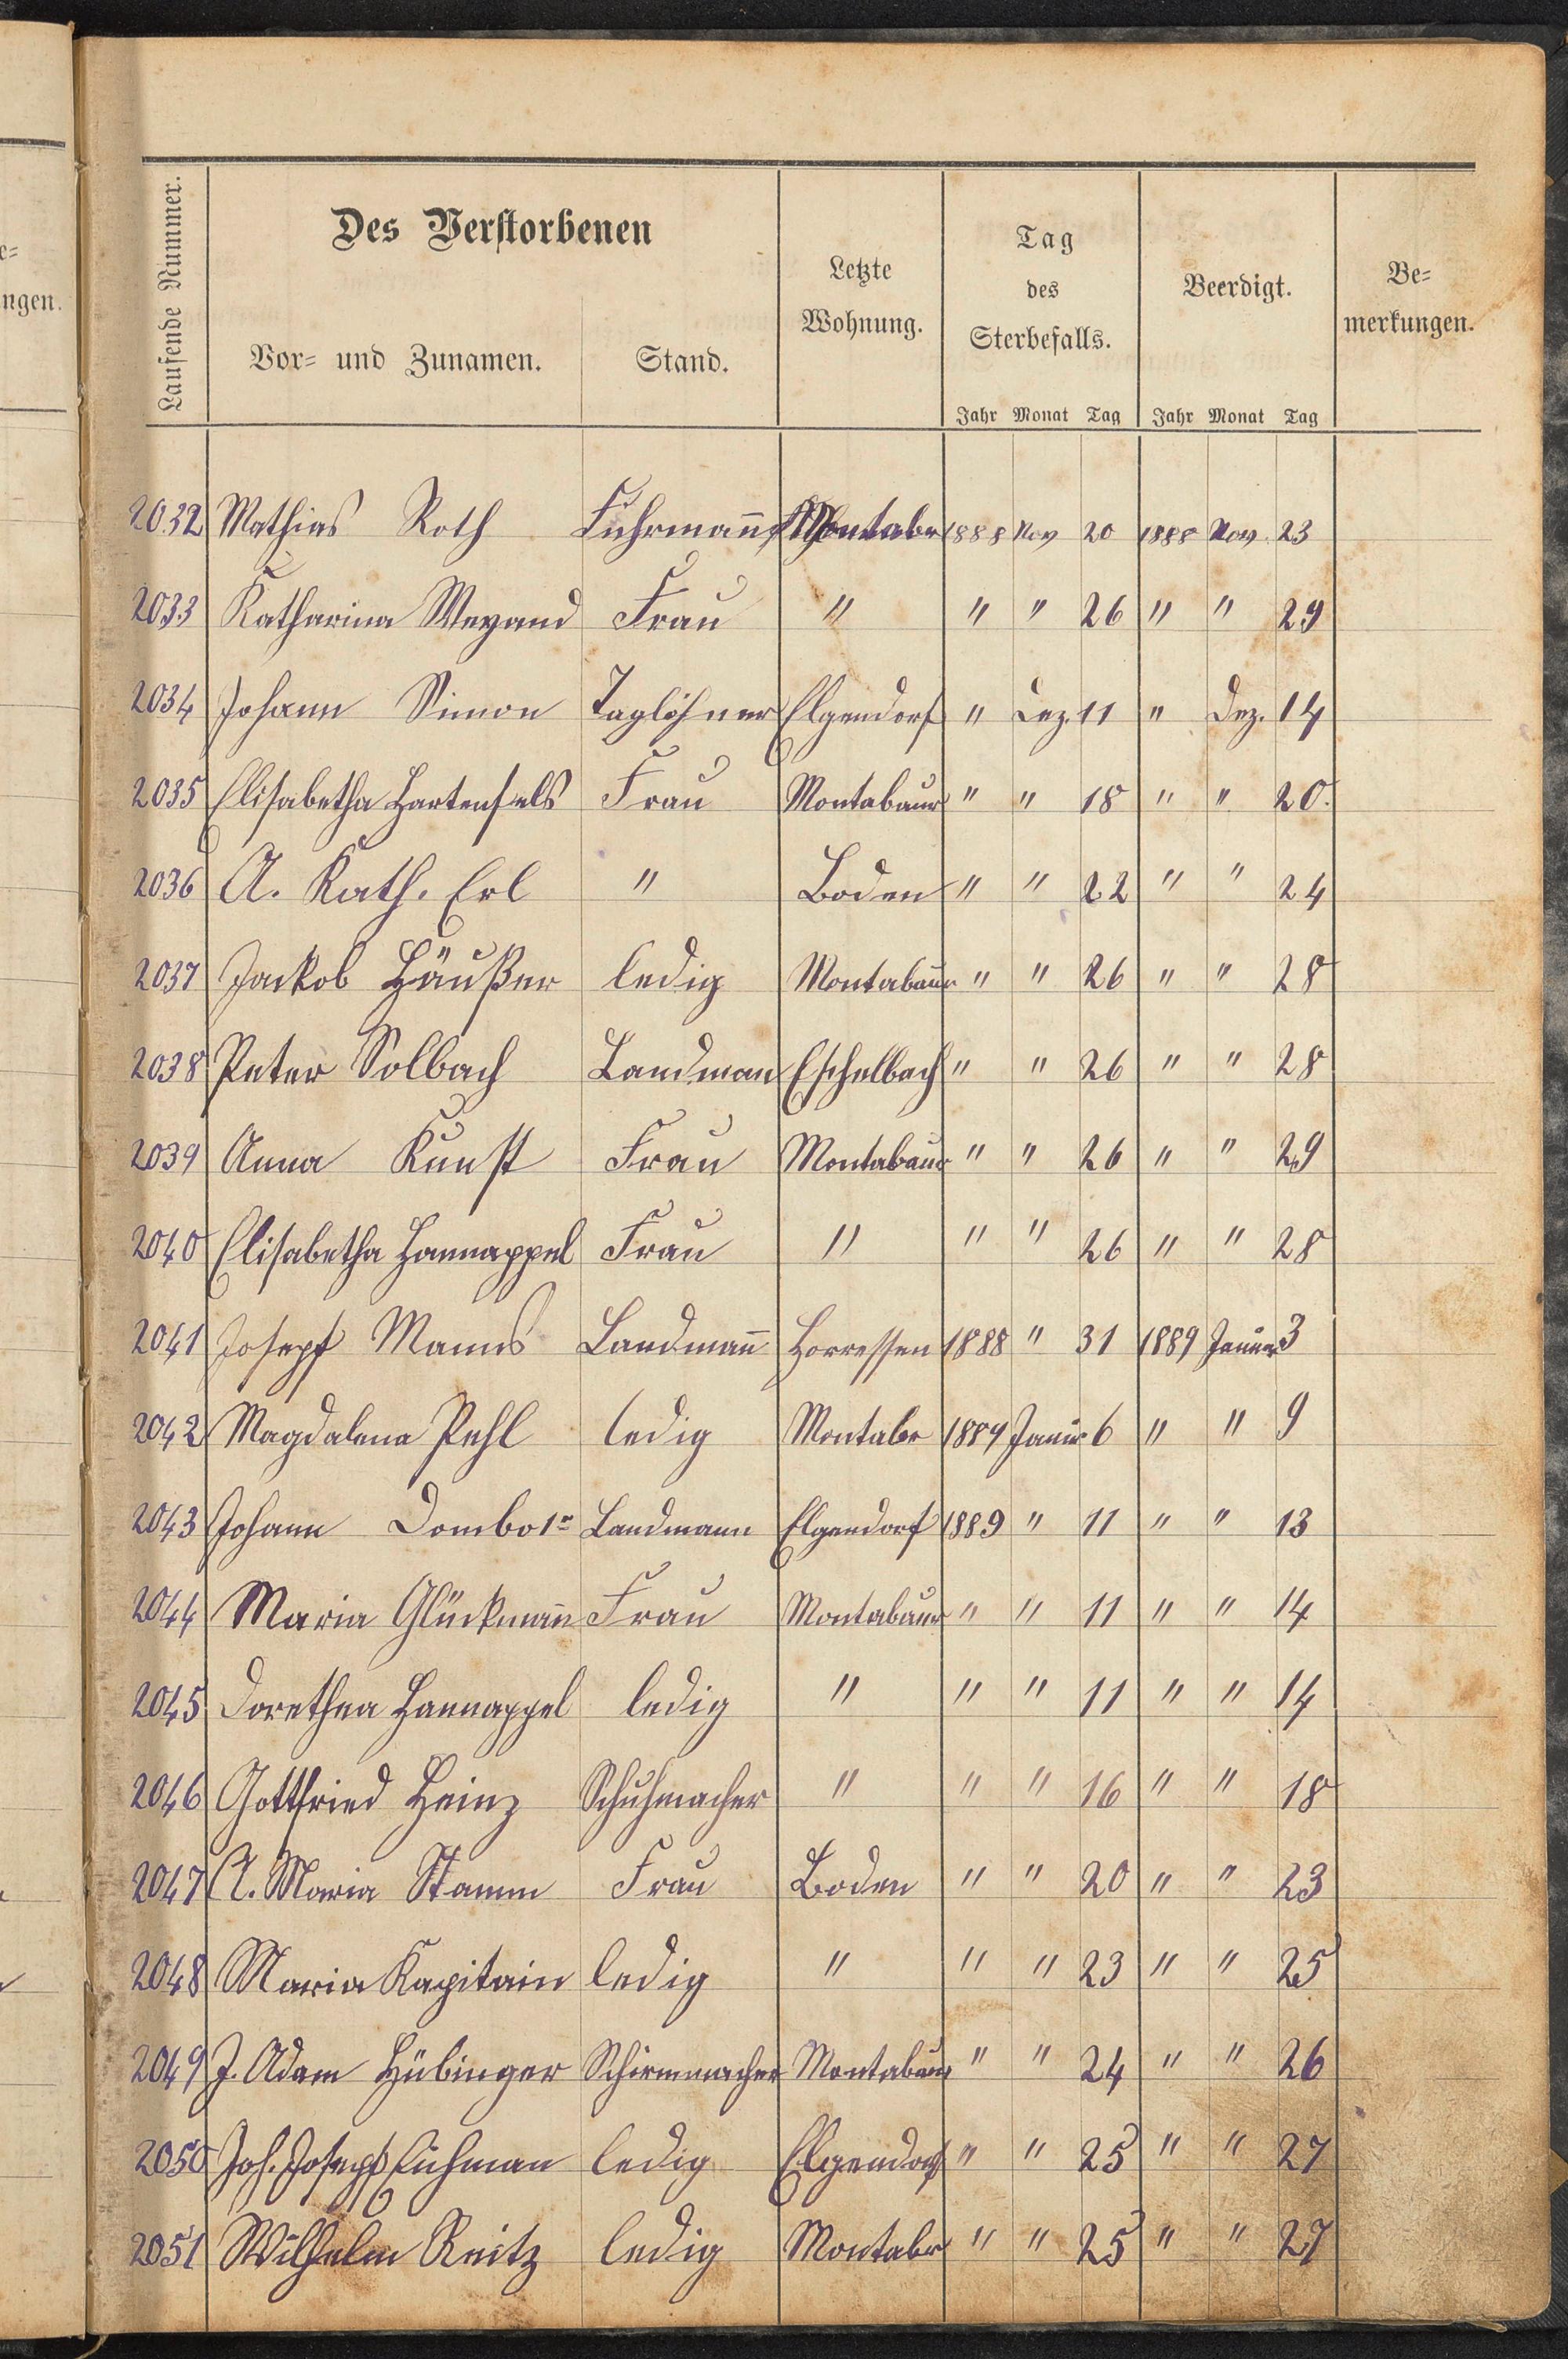 e=
ngen.
Laufende Nummer.
Des Verstorbenen
Vor= und Zunamen.
Stand.
Letzte
Wohnung.
Tag
des
Sterbefalls.
Beerdigt.
Be=
merkungen.
Jahr Monat Tag Jahr Monat Tag
2032 Mathias Roth Fuhrmann Montabr 1888 Nov 20 1888 Nov. 23
2033 Katharina Weyand Frau " " " 26 " " 29
2034 Johann Simon Taglöhner Elgendorf " Dez. 11 " Dez. 14
2035 Elisabetha Hartenfels Frau Montabaur " " 18 " " 20.
2036 A. Kath. Erl " Boden " " 22 " " 24
2037 Jackob Häußer ledig Montabaur " " 26 " " 28
2038 Peter Solbach Landman Eschelbach " " 26 " " 28
2039 Anna Kunst Frau Montabaur " " 26 " " 29
2040 Elisabetha Hannappel Frau " " " 26 " " 28
2041 Joseph Manns Landmañ Horressen 1888 " 31 1889 Januar 3
2042 Magdalena Pehl ledig Montabr 1889 Januar 6 " " 9
2043 Johann Dombo 1r Landmann Elgendorf 1889 " 11 " " 13
2044 Maria Glückmañ Frau Montabaur " " 11 " " 14
2045 Dorethea Hannappel ledig " " " 11 " " 14
2046 Gottfried Heinz Schuhmacher " " " 16 " " 18
2047 A. Maria Stamm Frau Boden " " 20 " " 23
2048 Maria Kapitain ledig " " " 23 " " 25
2049 J. Adam Hübinger Schirmmacher Montabaur " " 24 " " 26
2050 Joh. Joseph Eichman ledig Elgendorf " " 25 " " 27
2051 Wilhelm Reitz ledig Montabr " " 25 " " 27